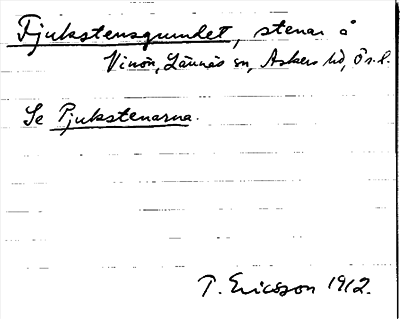 Fjukstensgrundet, stenar å
Vinön, Lännäs sn, Askers hd, Ö.s.l.
Se Pjukstenarna.
T. Ericsson 1912.